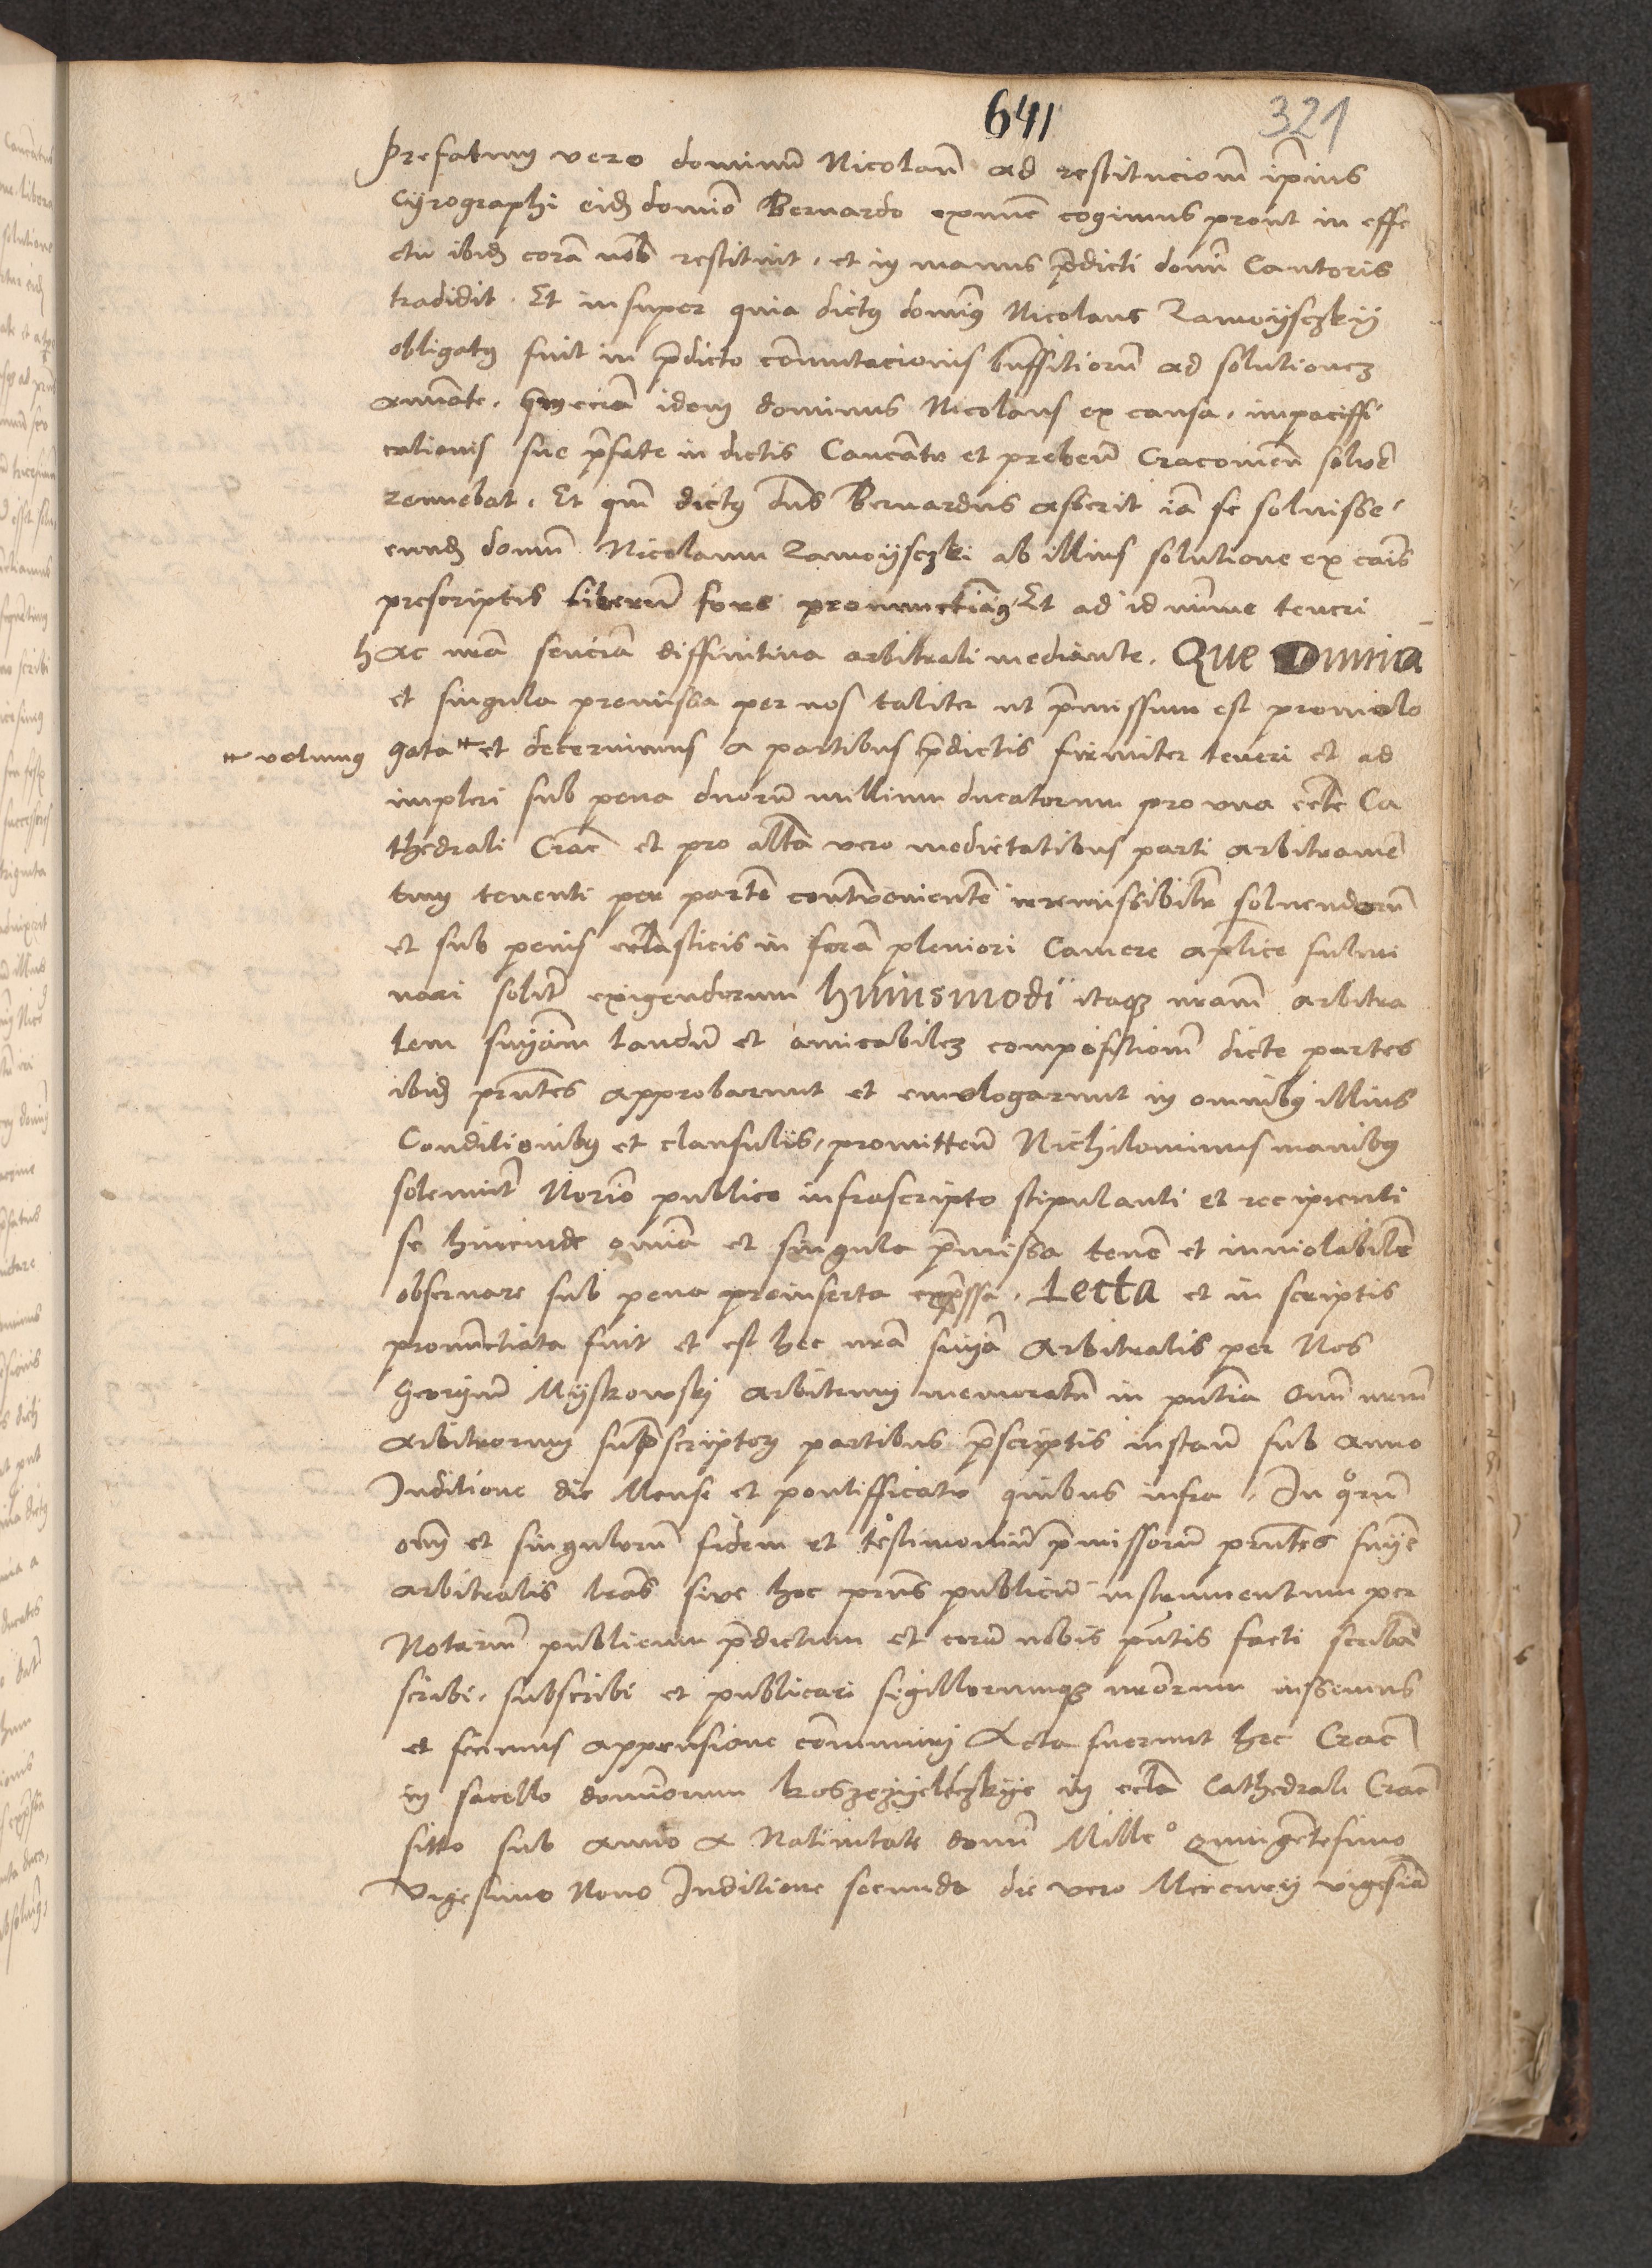 641 321
Prefatum vero dominū Nicolaū ad restitucionē ip̄ius
Cyrographi eidē dominō Bernardo exnunc cogimus prout in effe
ctu ibidē corā nob̄ restituit, et in manus p̄dicti domī Cantoris
tradidit. Et insuper quia dictꝰ dominꝰ Nicolaus Zamoysczky
obligatꝰ fuit in p̄dicto cōmutacionis bn̄ffitiorū ad solutionem
annuate. idem dominus Nicolaus ex causa impaciffi
cationis sue p̄fate in dictis Cancāte et prebenū Cracouien̄ solvē
rennebat. Et qm̄ dictꝰ dn̄s Bernardus asserit iā se soluisse
eundē domīnū Nicolaum Zamoysczki ab illius solutione ex cāis
prescriptis liberum fore pronunctiamꝰ Et ad id minime teneri
hac nrā senciā diffinitiua arbitrali mediante. Que Omnia
et singula premissa per nos taliter ut p̄missum est promulo
gata ⌗ et decernimus a partibus p̄dictis firmiter teneri et ad
⌗ volumus
impleri sub pena duorū millium ducatorum pro una eccle Ca
thedrali Crac̄ et pro altā vero medietatibus parti arbitramē
tum tenenti per partē contrauenientē irremissibilē soluendorū
et sub penis eccl̄asticis in formā pleniori Camere ap̄lice fulmi
nari solitꝭ exigendorum huiusmodi itaqꝫ nrām arbitra
lem sn̄iam laudū et amicabilem compositionē dicte partes
ibidē pn̄tes approbarunt et emologarunt in omnibꝰ illius
Conditionibꝰ et clausulis, promitten̄ Nichilominus manibꝰ
solenniter Notario publico infrascripto stipulanti et recipienti
se hincinde omīa et singula p̄missa tenē et inuiolabilē
obseruare sub pena preinserta exp̄ssa. Lecta et in scriptis
pronūnctiata fuit et est hec nrā sn̄ia Arbitralis per Nos
Georgiū Myskowsky arbitrum memoratū in pn̄tia Omī nrōrm
Arbitrorum sup̄scriptorꝫ partibus p̄scriptis instan̄ sub Anno
Inditione die Mense et pontifficatu quibus infra. In qͦrū
om̄ et singulorū fidem et testimoniū p̄missorū pn̄tes sn̄ie
arbitralis lrās siue hoc pn̄s publicū instrumentum per
Notariū publicum p̄dictum et corā nobis pn̄tis facti scribā
scribi, subscribi et publicari sigillorumqꝫ nrōrum iussimus
et fecimus appensione cōmuniri Acta fuerunt hec Crac̄
in sacello domīorum in ecclā Cathedrali Crac̄
sitto sub Anno A Natiuitate domī Milleͦ Quingētesimo
Vigesimo Nono Inditione secunda die vero Mercurij vigesiā